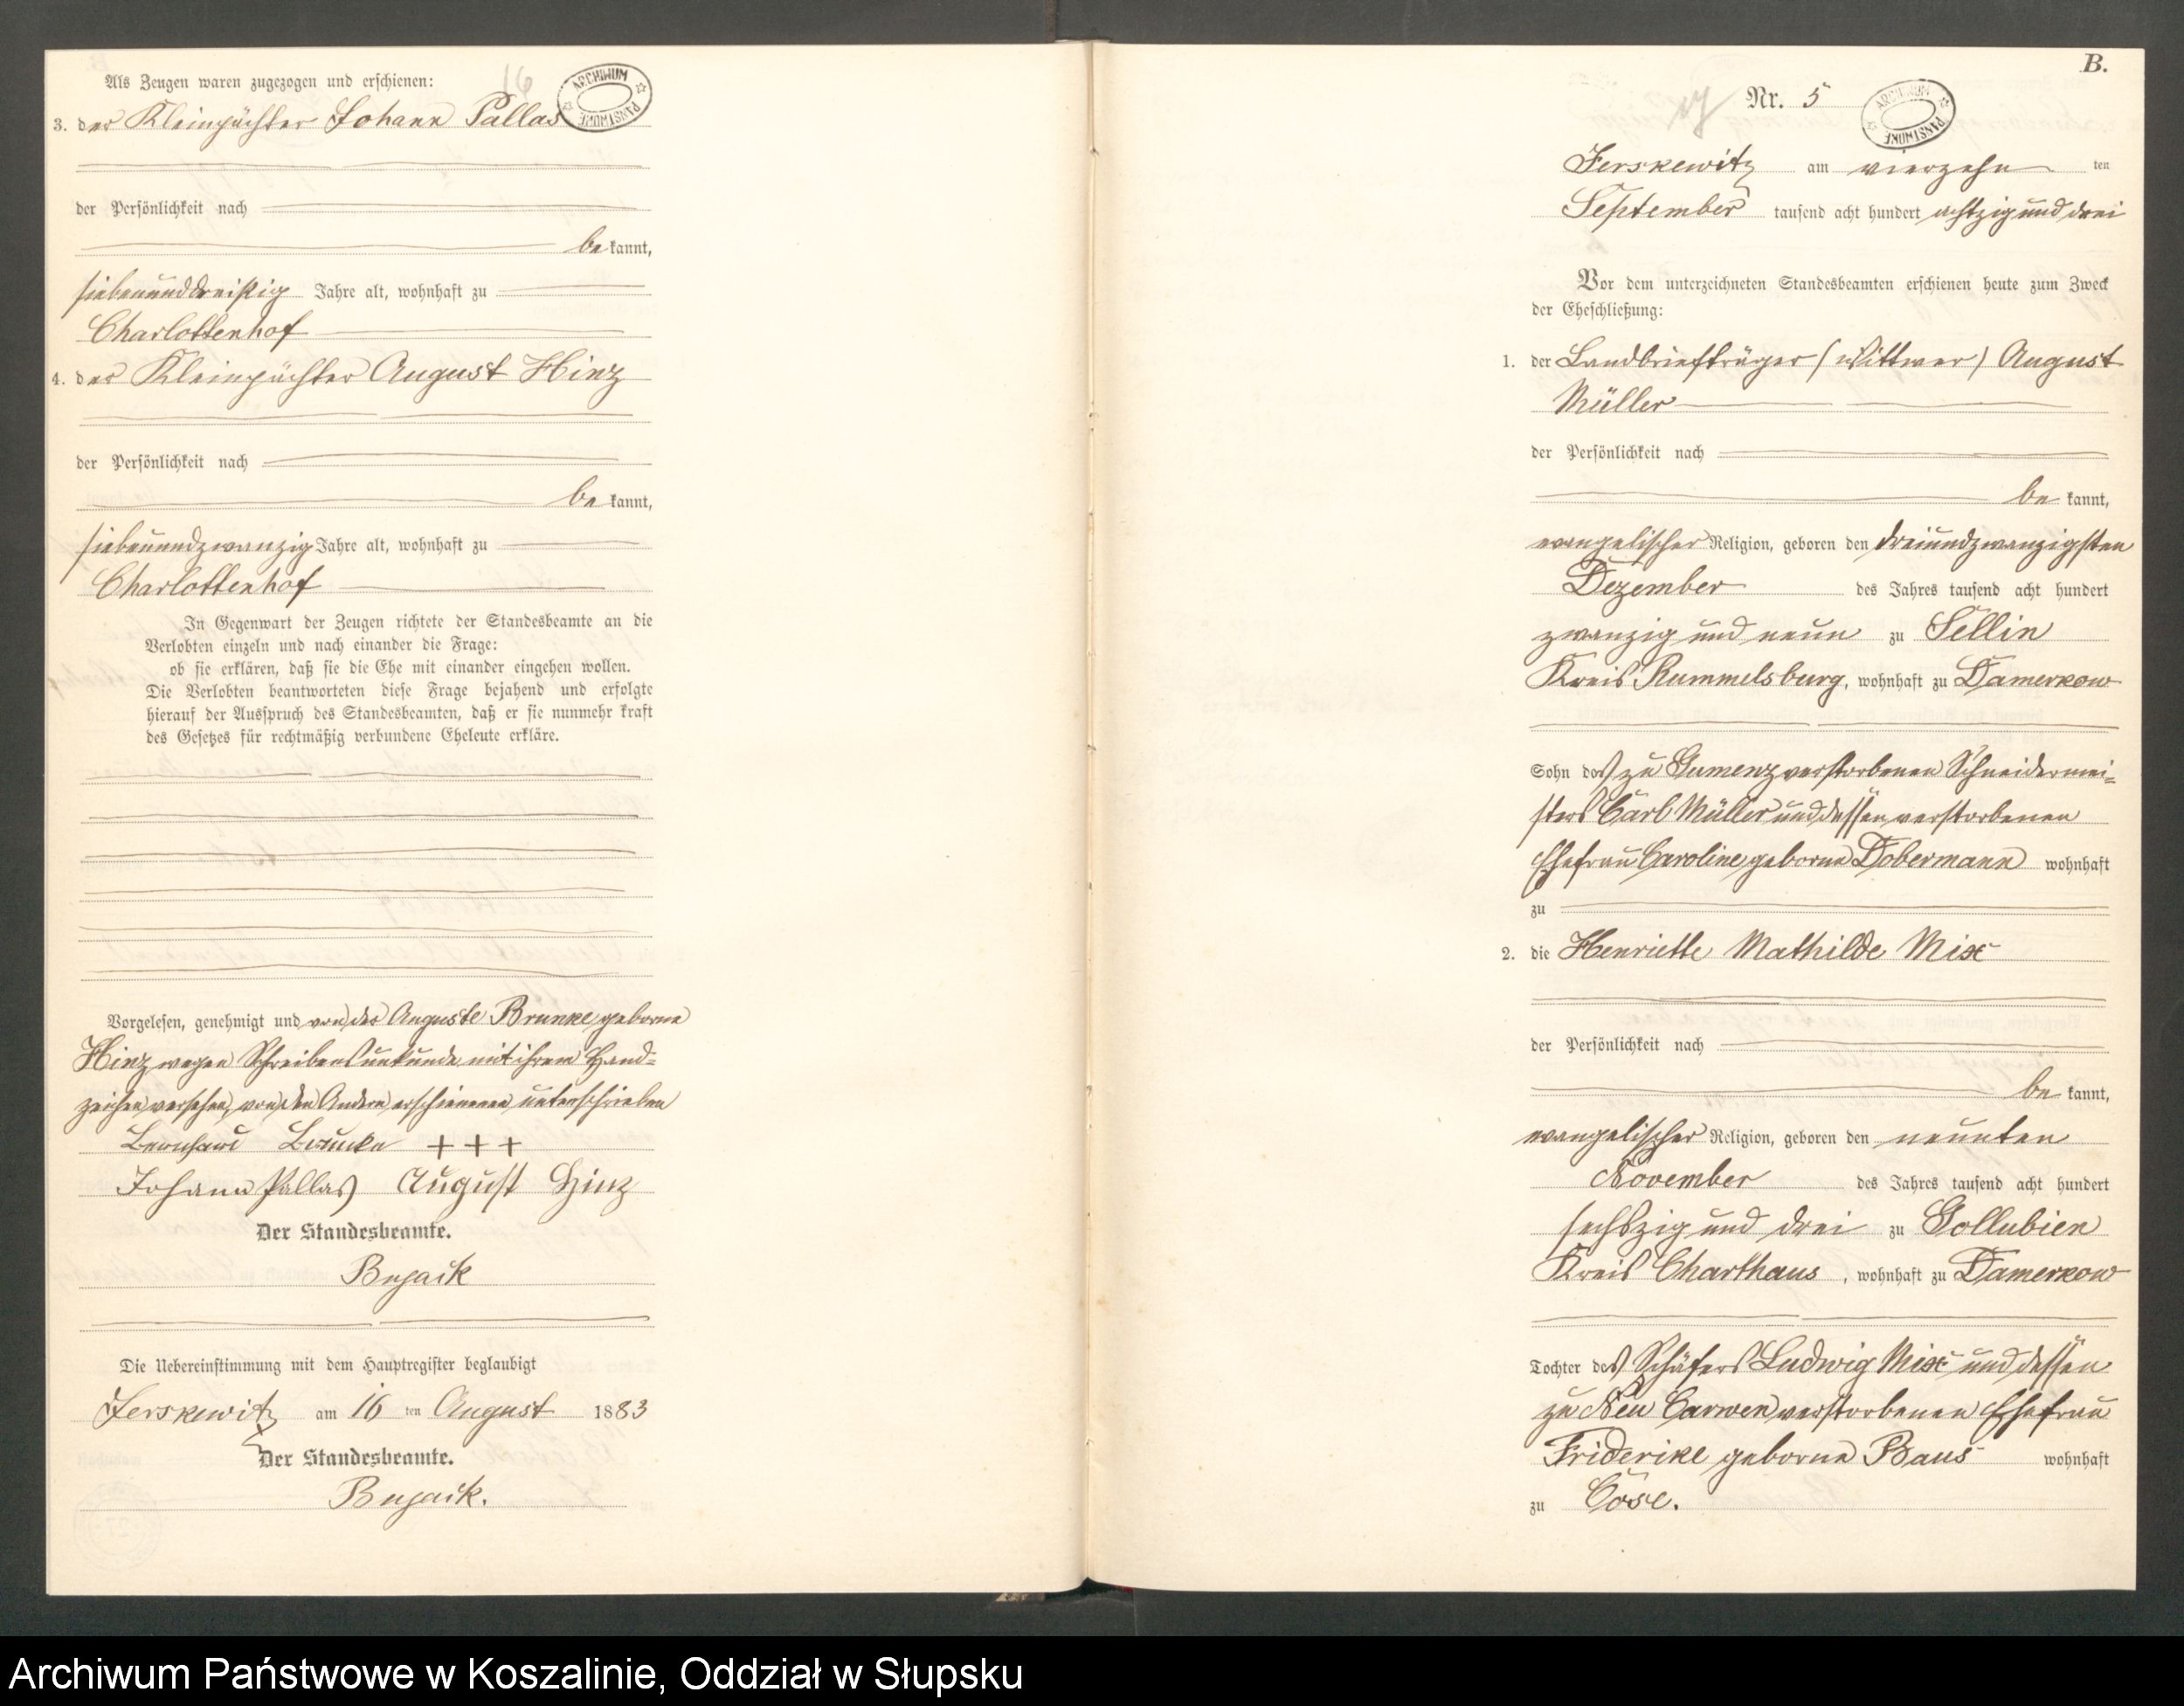 16
ARCHIWUM PAŃSTWOWE
Als Zeugen waren zugezogen und erschienen:
3. der Kleinpächter Johann Pallas
der Persönlichkeit nach
be kannt,
siebenunddreißig Jahre alt, wohnhaft zu
Charlottenhof
4. der Kleinpächter August Hinz
der Persönlichkeit nach
be kannt,
siebenundzwanzig Jahre alt, wohnhaft zu
Charlottenhof
In Gegenwart der Zeugen richtete der Standesbeamte an die
Verlobten einzeln und nach einander die Frage:
ob sie erklären, daß sie die Ehe mit einander eingehen wollen.
Die Verlobten beantworteten diese Frage bejahend und erfolgte
hierauf der Ausspruch des Standesbeamten, daß er sie nunmehr kraft
des Gesetzes für rechtmäßig verbundene Eheleute erkläre.
Vorgelesen, genehmigt und von der Auguste Brunke geborne
Hinz wegen Schreibensunkunde mit ihrem Hand=
zeichen versehen, von den Andern erschienenen unterschrieben
Bernhard Brunke + + +
Johann Pallas August Hinz
Der Standesbeamte.
Bujack
Die Uebereinstimmung mit dem Hauptregister beglaubigt
Jerskewitz am 16 ten August 1883
Der Standesbeamte.
Bujack.
B.
Nr. 5
ARCHIWUM PAŃSTWOWE
Jerskewitz am vierzehn ten
September tausend acht hundert achtzig und drei
Vor dem unterzeichneten Standesbeamten erschienen heute zum Zweck
der Eheschließung:
1. der Landbriefträger (Wittwer) August
Müller
der Persönlichkeit nach
be kannt,
evangelischer Religion, geboren den dreiundzwanzigsten
Dezember des Jahres tausend acht hundert
zwanzig und neun zu Sellin
Kreis Rummelsburg, wohnhaft zu Damerkow
Sohn des zu Gumenz verstorbenen Schneidermei=
sters Carl Müller und dessen verstorbenen
Ehefrau Caroline geborne Dobermann wohnhaft
zu
2. die Henriette Mathilde Mix
der Persönlichkeit nach
be kannt,
evangelischer Religion, geboren den neunten
November des Jahres tausend acht hundert
sechszig und drei zu Gollubien
Kreis Charthaus, wohnhaft zu Damerkow
Tochter des Schäfers Ludwig Mix und dessen
zu Neu Carwen verstorbenen Ehefrau
Friderike geborne Baus wohnhaft
zu Cose.
Archiwum Państwowe w Koszalinie, Oddział w Słupsku